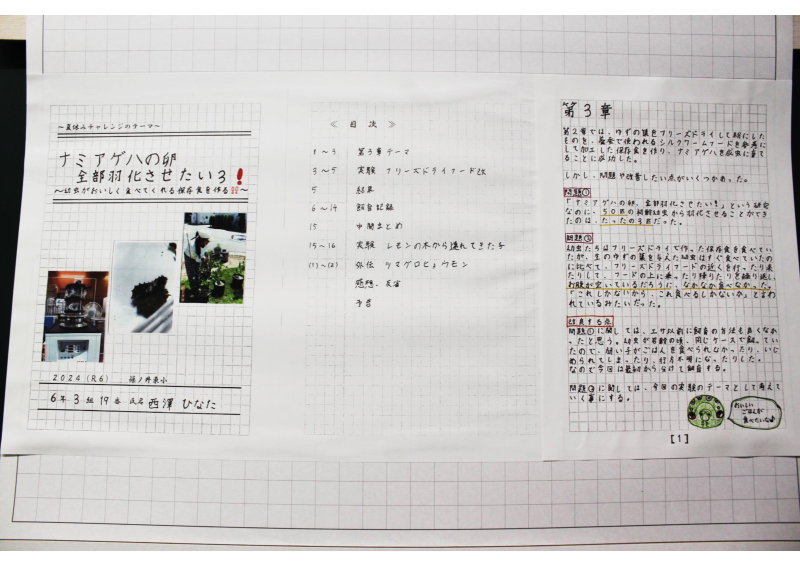 ～夏休みチャレンジのテーマ～
ナミアゲハの卵
全部羽化させたい3!
～幼虫がおいしく食べてくれる保存食を作る!!～
2024 (R6) 篠ノ井東小
6年 3組 19番 氏名 西澤 ひなた
≪ 目次 ≫
1～3 第3章テーマ
3～5 実験 フリーズドライフード改
5 結果
6～14 飼育記録
15 中間まとめ
15～16 実験 レモンの木から連れてきた子
(1)～(2) 外伝 ツマグロヒョウモン
感想、反省
予告
第3章
第2章では、ゆずの葉をフリーズドライして粉にした
ものを、養蚕で使われるシルクワームフードを参考に
して加工した保存食を作り、ナミアゲハを成虫に育て
ることに成功した。
しかし、問題や改善したい点がいくつかあった。
問題①
「ナミアゲハの卵、全部羽化させたい!」という研究
なのに、50匹の初齢幼虫から羽化させることができ
たのは、たったの3匹だった。
問題②
幼虫たちはフリーズドライで作った保存食を食べてい
たが、生のゆずの葉を与えた幼虫はすぐ食べていたの
に比べて、フリーズドライフードの近くを行ったり来
たりして、フードの上に乗ったり降りたりを繰り返し
お腹が空いているだろうに、なかなか食べなかった。
「これしかないから、これ食べるしかないか」と言わ
れているみたいだった。
改良する点
問題①に関しては、エサ以前に飼育の方法も良くなか
ったと思う。幼虫が若齢の頃、同じケースで飼ってい
たので、弱い子がごはんを食べられなかったり、いじ
められてしまったり、行方不明になったりした。
なので今回は最初から分けて飼育する。
問題②に関しては、今回の実験のテーマとして考えて
いく事にする。
おいしい
ごはんが
食べたいなぁ
[1]